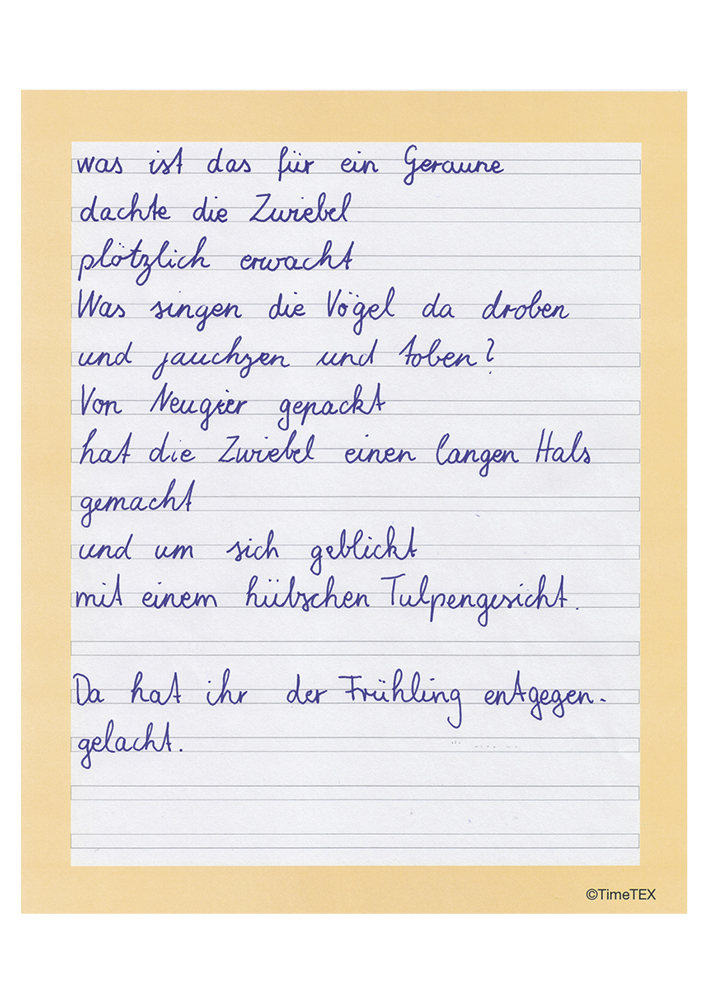 was ist das für ein Geraune
dachte die Zwiebel
plötzlich erwacht
Was singen die Vögel da droben
und jauchzen und toben?
Von Neugier gepackt
hat die Zwiebel einen langen Hals
gemacht
und um sich geblickt
mit einem hübschen Tulpengesicht.
Da hat ihr der Frühling entgegen-
gelacht.
©TimeTEX